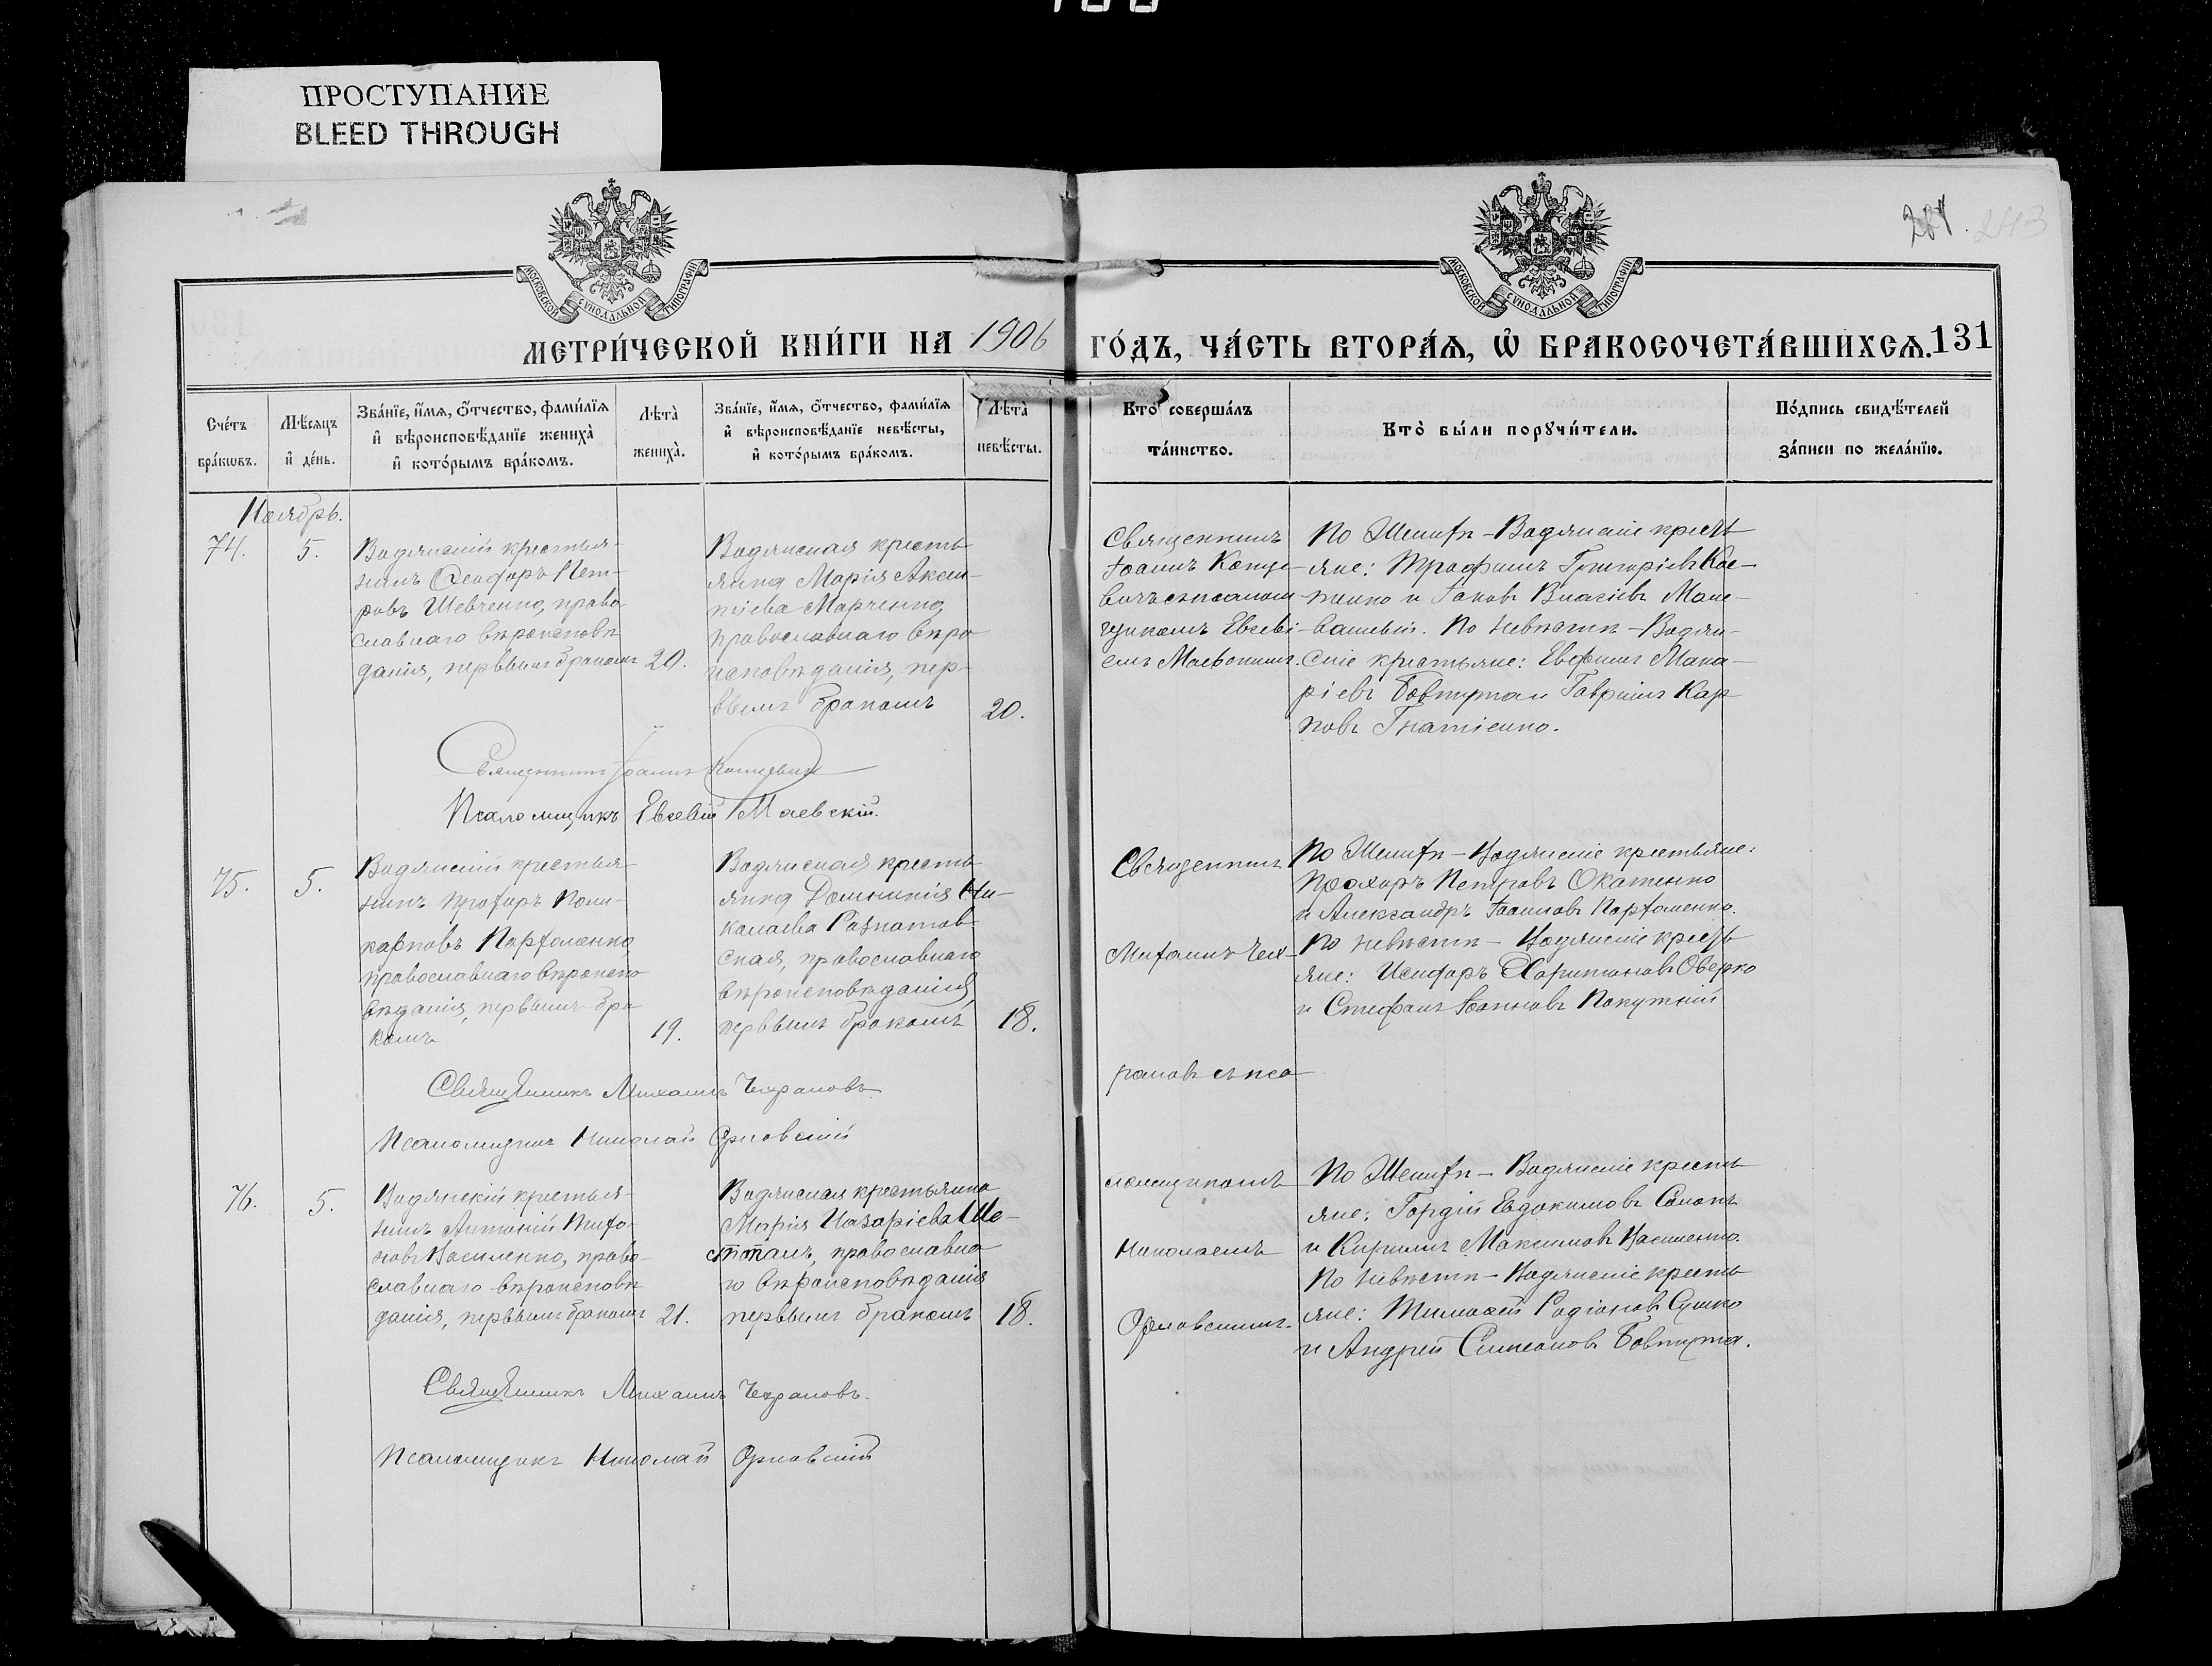 ПРОСТУПАНИЕ
BLEED THROUGH
МОСКОВСКОЙ СѴНОДАЛЬНОЙ ТИПОГРАФІИ
МОСКОВСКОЙ СѴНОДАЛЬНОЙ ТИПОГРАФІИ
243
МЕТРИ́ЧЕСКОЙ КНИ́ГИ НА 1906 ГО́ДЪ, ЧА́СТЬ ВТОРА́Ѧ, Ѡ҆ БРАКОСОЧЕТА́ВШИХСѦ. 131
Сче́тъ бра́кѡвъ.
Мѣ́сѧцъ и҆ де́нь.
Зва́нїе, и҆́мѧ, ѻ҆́тчество, фами́лїѧ и҆ вѣроисповѣ́данїе жениха̀ и҆ кото́рымъ бра́комъ.
Лѣта̀ жениха̀.
Зва́нїе, и҆́мѧ, ѻ҆́тчество, фами́лїѧ и҆ вѣроисповѣ́данїе невѣ́сты, и҆ кото́рымъ бра́комъ.
Лѣта̀ невѣ́сты.
Кто̀ соверша́лъ та́инство.
Кто̀ бы́ли порꙋчи́тели.
По́дпись свидѣ́телей за́писи по жела́нїю.
Ноябрь.
74.
5.
Водянскій крестья-
нинъ Ѳеодоръ Пет-
ровъ Шевченко, право-
славнаго вѣроисповѣ
данія, первымъ бракомъ
20.
Водянская кресть
янка Марія Аксен-
тіева Марченко,
православнаго вѣро
исповѣданія, пер-
вымъ бракомъ
20.
Священникъ
Іоаннъ
съ псалом
щикомъ Евсеві-
емъ Маевскимъ.
По Женихѣ – Водянскіе кресть
яне: Трофимъ Григорьевъ
и Іаковъ Власіевъ
По невѣстѣ – Водян-
скіе крестьяне: Евфимъ Мака-
ріевъ Бовтута и Гавріилъ Кар
повъ Гнатіенко.
Священникъ Іоаннъ
Псаломщикъ Евсевій Маевскій.
75.
5.
Водянскій крестья-
нинъ Прохоръ Поли-
карповъ Пархоменко
православнаго вѣроиспо
вѣданія, первымъ бра
комъ
19.
Водянская кресть
янка Домникія Ни-
колаева
ская, православнаго
вѣроисповѣданія
первымъ бракомъ
18.
Священникъ
Михаилъ Чех-
рановъ съ пса
ломщикомъ
Николаемъ
Орловскимъ.
По Женихѣ – Водянскіе крестьяне:
Прохоръ Петровъ Окатенко
и Александръ Іоанновъ Пархоменко.
По невѣстѣ – Водянскіе кресть
яне: Исидоръ Харитоновъ Оверко
и Стефанъ Іоанновъ Покутній
Священникъ Михаилъ Чехрановъ
Псаломщикъ Николай Орловскій
76.
5.
Водянскій крестья-
нинъ Антоній Тихо
новъ Василенко, право-
славнаго вѣроисповѣ
данія, первымъ бракомъ
21.
Водянская крестьянка
Марія Назаріева Ше-
православна
го вѣроисповѣданія
первымъ бракомъ
18.
По Женихѣ – Водянскіе кресть
яне: Гордій Евдокимовъ
и Кириллъ Максимовъ Василенко.
По невѣстѣ – Водянскіе кресть
яне: Тимоѳей Родіоновъ Сушко
и Андрей Симеоновъ Бовтута.
Священникъ Михаилъ Чехрановъ.
Псаломщикъ Николай Орловскій